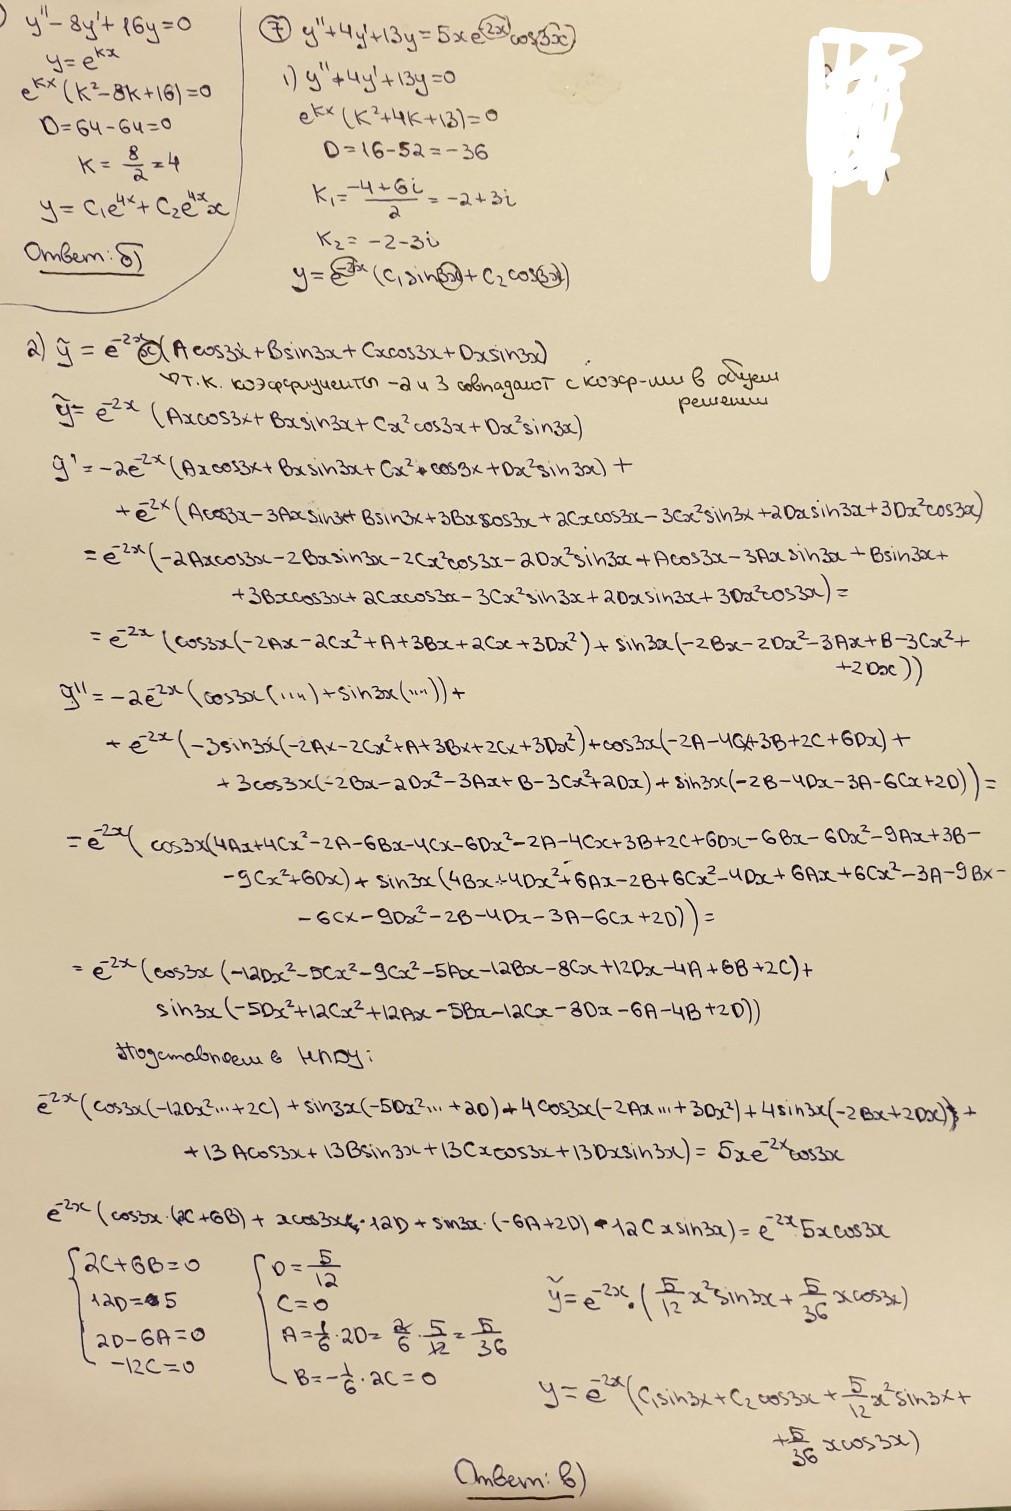 y'' - 8y' + 16y = 0
y = e^{kx}
e^{kx} (k² - 8k + 16) = 0
D = 64 - 64 = 0
k = 8/2 = 4
y = C₁e^{4x} + C₂e^{4x}x
Ответ: б)
⑦ y'' + 4y' + 13y = 5xe^{-2x}cos(3x)
1) y'' + 4y' + 13y = 0
e^{kx} (k² + 4k + 13) = 0
D = 16 - 52 = -36
k₁ = (-4 + 6i)/2 = -2 + 3i
k₂ = -2 - 3i
y = e^{-2x} (C₁sin(3x) + C₂cos(3x))
2) ỹ = e^{-2x} x (Acos3x + Bsin3x + Cxcos3x + Dxsin3x)
т.к. коэффициенты -2 и 3 совпадают с коэф-ми в общем
решении
ỹ = e^{-2x} (Axcos3x + Bxsin3x + Cx²cos3x + Dx²sin3x)
ỹ' = -2e^{-2x} (Axcos3x + Bxsin3x + Cx²cos3x + Dx²sin3x) +
+ e^{-2x} (Acos3x - 3Axsin3x + Bsin3x + 3Bxcos3x + 2Cxcos3x - 3Cx²sin3x + 2Dxsin3x + 3Dx²cos3x)
= e^{-2x} (-2Axcos3x - 2Bxsin3x - 2Cx²cos3x - 2Dx²sin3x + Acos3x - 3Axsin3x + Bsin3x +
+ 3Bxcos3x + 2Cxcos3x - 3Cx²sin3x + 2Dxsin3x + 3Dx²cos3x) =
= e^{-2x} (cos3x(-2Ax - 2Cx² + A + 3Bx + 2Cx + 3Dx²) + sin3x(-2Bx - 2Dx² - 3Ax + B - 3Cx² +
+ 2Dx))
ỹ'' = -2e^{-2x} (cos3x(....) + sin3x(....)) +
+ e^{-2x} (-3sin3x(-2Ax - 2Cx² + A + 3Bx + 2Cx + 3Dx²) + cos3x(-2A - 4Cx + 3B + 2C + 6Dx) +
+ 3cos3x(-2Bx - 2Dx² - 3Ax + B - 3Cx² + 2Dx) + sin3x(-2B - 4Dx - 3A - 6Cx + 2D)) =
= e^{-2x} (cos3x(4Ax + 4Cx² - 2A - 6Bx - 4Cx - 6Dx² - 2A - 4Cx + 3B + 2C + 6Dx - 6Bx - 6Dx² - 9Ax + 3B -
- 9Cx² + 6Dx) + sin3x(4Bx + 4Dx² + 6Ax - 2B + 6Cx² - 4Dx + 6Ax + 6Cx² - 3A - 9Bx -
- 6Cx - 9Dx² - 2B - 4Dx - 3A - 6Cx + 2D)) =
= e^{-2x} (cos3x(-12Dx² - 5Cx² - 9Cx² - 5Ax - 12Bx - 8Cx + 12Dx - 4A + 6B + 2C) +
sin3x(-5Dx² + 12Cx² + 12Ax - 5Bx - 12Cx - 8Dx - 6A - 4B + 2D))
Подставляем в НЛДУ:
e^{-2x} (cos3x(-12Dx²... + 2C) + sin3x(-5Dx²... + 2D) + 4cos3x(-2Ax... + 3Dx²) + 4sin3x(-2Bx + 2Dx) +
+ 13Acos3x + 13Bsin3x + 13Cxcos3x + 13Dxsin3x) = 5xe^{-2x}cos3x
e^{-2x} (cos3x · (2C + 6B) + xcos3x · 12D + sin3x · (-6A + 2D) - 12Cxsin3x) = e^{-2x} 5xcos3x
{ 2C + 6B = 0
12D = 5
2D - 6A = 0
-12C = 0
{ D = 5/12
C = 0
A = 1/6 · 2D = 2/6 · 5/12 = 5/36
B = -1/6 · 2C = 0
ỹ = e^{-2x} · (5/12 x²sin3x + 5/36 xcos3x)
y = e^{-2x} (C₁sin3x + C₂cos3x + 5/12 x²sin3x +
+ 5/36 xcos3x)
Ответ: в)